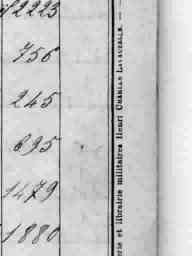 12223
756
245
695
1479
1880
rie et librairie militaires Henri CHARLES-LAVAUZELLE. —